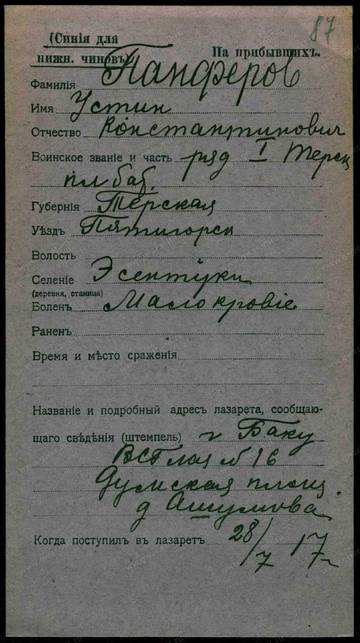 87
(Синія для
нижн. чиновъ)
На прибывшихъ.
Фамилія Панферов
Имя Устин
Отчество Константинович
Воинское званіе и часть ряд I Терск
пл баб
Губернія Терская
Уѣздъ Пятигорск
Волость
Селеніе Эсентуки
(деревня, станица)
Боленъ Малокровіе
Раненъ
Время и мѣсто сраженія
Названіе и подробный адресъ лазарета, сообщаю-
щаго свѣдѣнія (штемпель) г Баку
ВСГ лаз № 16
Думская площ
д Ашумова
Когда поступилъ въ лазаретъ 28/7 17 г